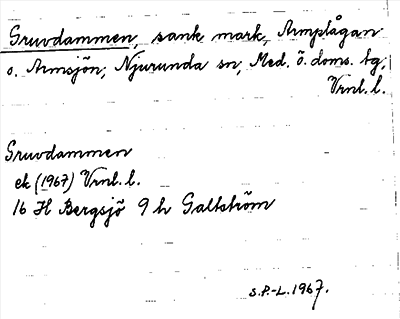 Gruvdammen, sank mark, Armplågan
o. Armsjön, Njurunda sn, Med. ö. doms. tg,
Vrnl. l.
Gruvdammen
ek (1967) Vrnl. l.
16 H Bergsjö 9 h Galtström
S.P.-L. 1967.